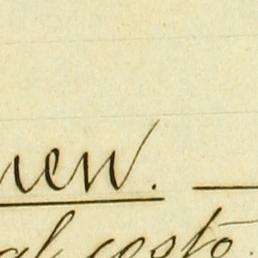 new. —
al costo.